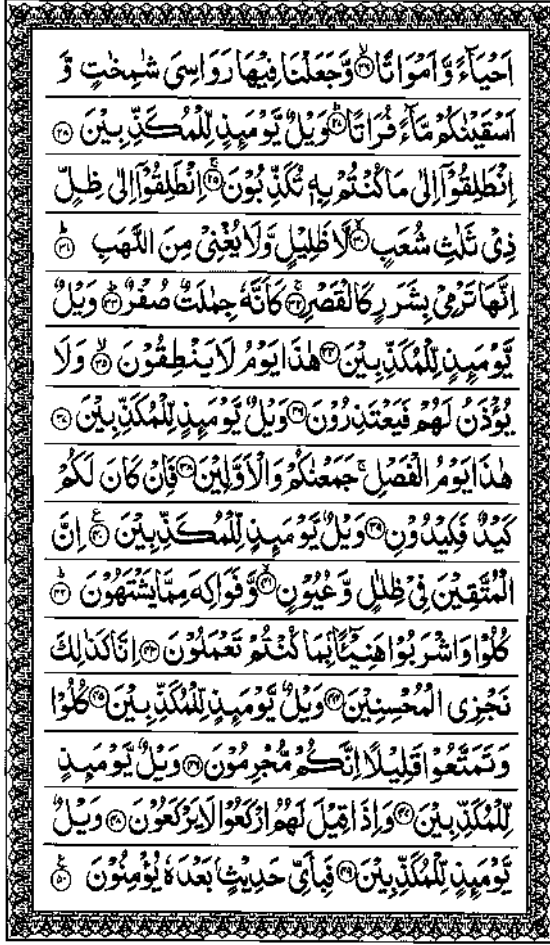 اَحْيَآءً وَّاَمْوَاتًا ﴿۲۶﴾ وَّجَعَلْنَا فِيْهَا رَوَاسِيَ شٰمِخٰتٍ وَّ
اَسْقَيْنٰكُمْ مَّآءً فُرَاتًا ﴿۲۷﴾ وَيْلٌ يَّوْمَىِٕذٍ لِّلْمُكَذِّبِيْنَ ﴿۲۸﴾
اِنْطَلِقُوْۤا اِلٰى مَا كُنْتُمْ بِهٖ تُكَذِّبُوْنَ ﴿۲۹﴾ اِنْطَلِقُوْۤا اِلٰى ظِلٍّ
ذِيْ ثَلٰثِ شُعَبٍ ﴿۳۰﴾ لَّا ظَلِيْلٍ وَّلَا يُغْنِيْ مِنَ اللَّهَبِ ﴿۳۱﴾
اِنَّهَا تَرْمِيْ بِشَرَرٍ كَالْقَصْرِ ﴿۳۲﴾ كَاَنَّهٗ جِمٰلَتٌ صُفْرٌ ﴿۳۳﴾ وَيْلٌ
يَّوْمَىِٕذٍ لِّلْمُكَذِّبِيْنَ ﴿۳۴﴾ هٰذَا يَوْمُ لَا يَنْطِقُوْنَ ﴿۳۵﴾ وَلَا
يُؤْذَنُ لَهُمْ فَيَعْتَذِرُوْنَ ﴿۳۶﴾ وَيْلٌ يَّوْمَىِٕذٍ لِّلْمُكَذِّبِيْنَ ﴿۳۷﴾
هٰذَا يَوْمُ الْفَصْلِ ۚ جَمَعْنٰكُمْ وَالْاَوَّلِيْنَ ﴿۳۸﴾ فَاِنْ كَانَ لَكُمْ
كَيْدٌ فَكِيْدُوْنِ ﴿۳۹﴾ وَيْلٌ يَّوْمَىِٕذٍ لِّلْمُكَذِّبِيْنَ ﴿۴۰﴾ اِنَّ
الْمُتَّقِيْنَ فِيْ ظِلٰلٍ وَّعُيُوْنٍ ﴿۴۱﴾ وَّفَوَاكِهَ مِمَّا يَشْتَهُوْنَ ﴿۴۲﴾
كُلُوْا وَاشْرَبُوْا هَنِيْٓـًٔا بِمَا كُنْتُمْ تَعْمَلُوْنَ ﴿۴۳﴾ اِنَّا كَذٰلِكَ
نَجْزِى الْمُحْسِنِيْنَ ﴿۴۴﴾ وَيْلٌ يَّوْمَىِٕذٍ لِّلْمُكَذِّبِيْنَ ﴿۴۵﴾ كُلُوْا
وَتَمَتَّعُوْا قَلِيْلًا اِنَّكُمْ مُّجْرِمُوْنَ ﴿۴۶﴾ وَيْلٌ يَّوْمَىِٕذٍ
لِّلْمُكَذِّبِيْنَ ﴿۴۷﴾ وَاِذَا قِيْلَ لَهُمُ ارْكَعُوْا لَا يَرْكَعُوْنَ ﴿۴۸﴾ وَيْلٌ
يَّوْمَىِٕذٍ لِّلْمُكَذِّبِيْنَ ﴿۴۹﴾ فَبِاَيِّ حَدِيْثٍۭ بَعْدَهٗ يُؤْمِنُوْنَ ﴿۵۰﴾